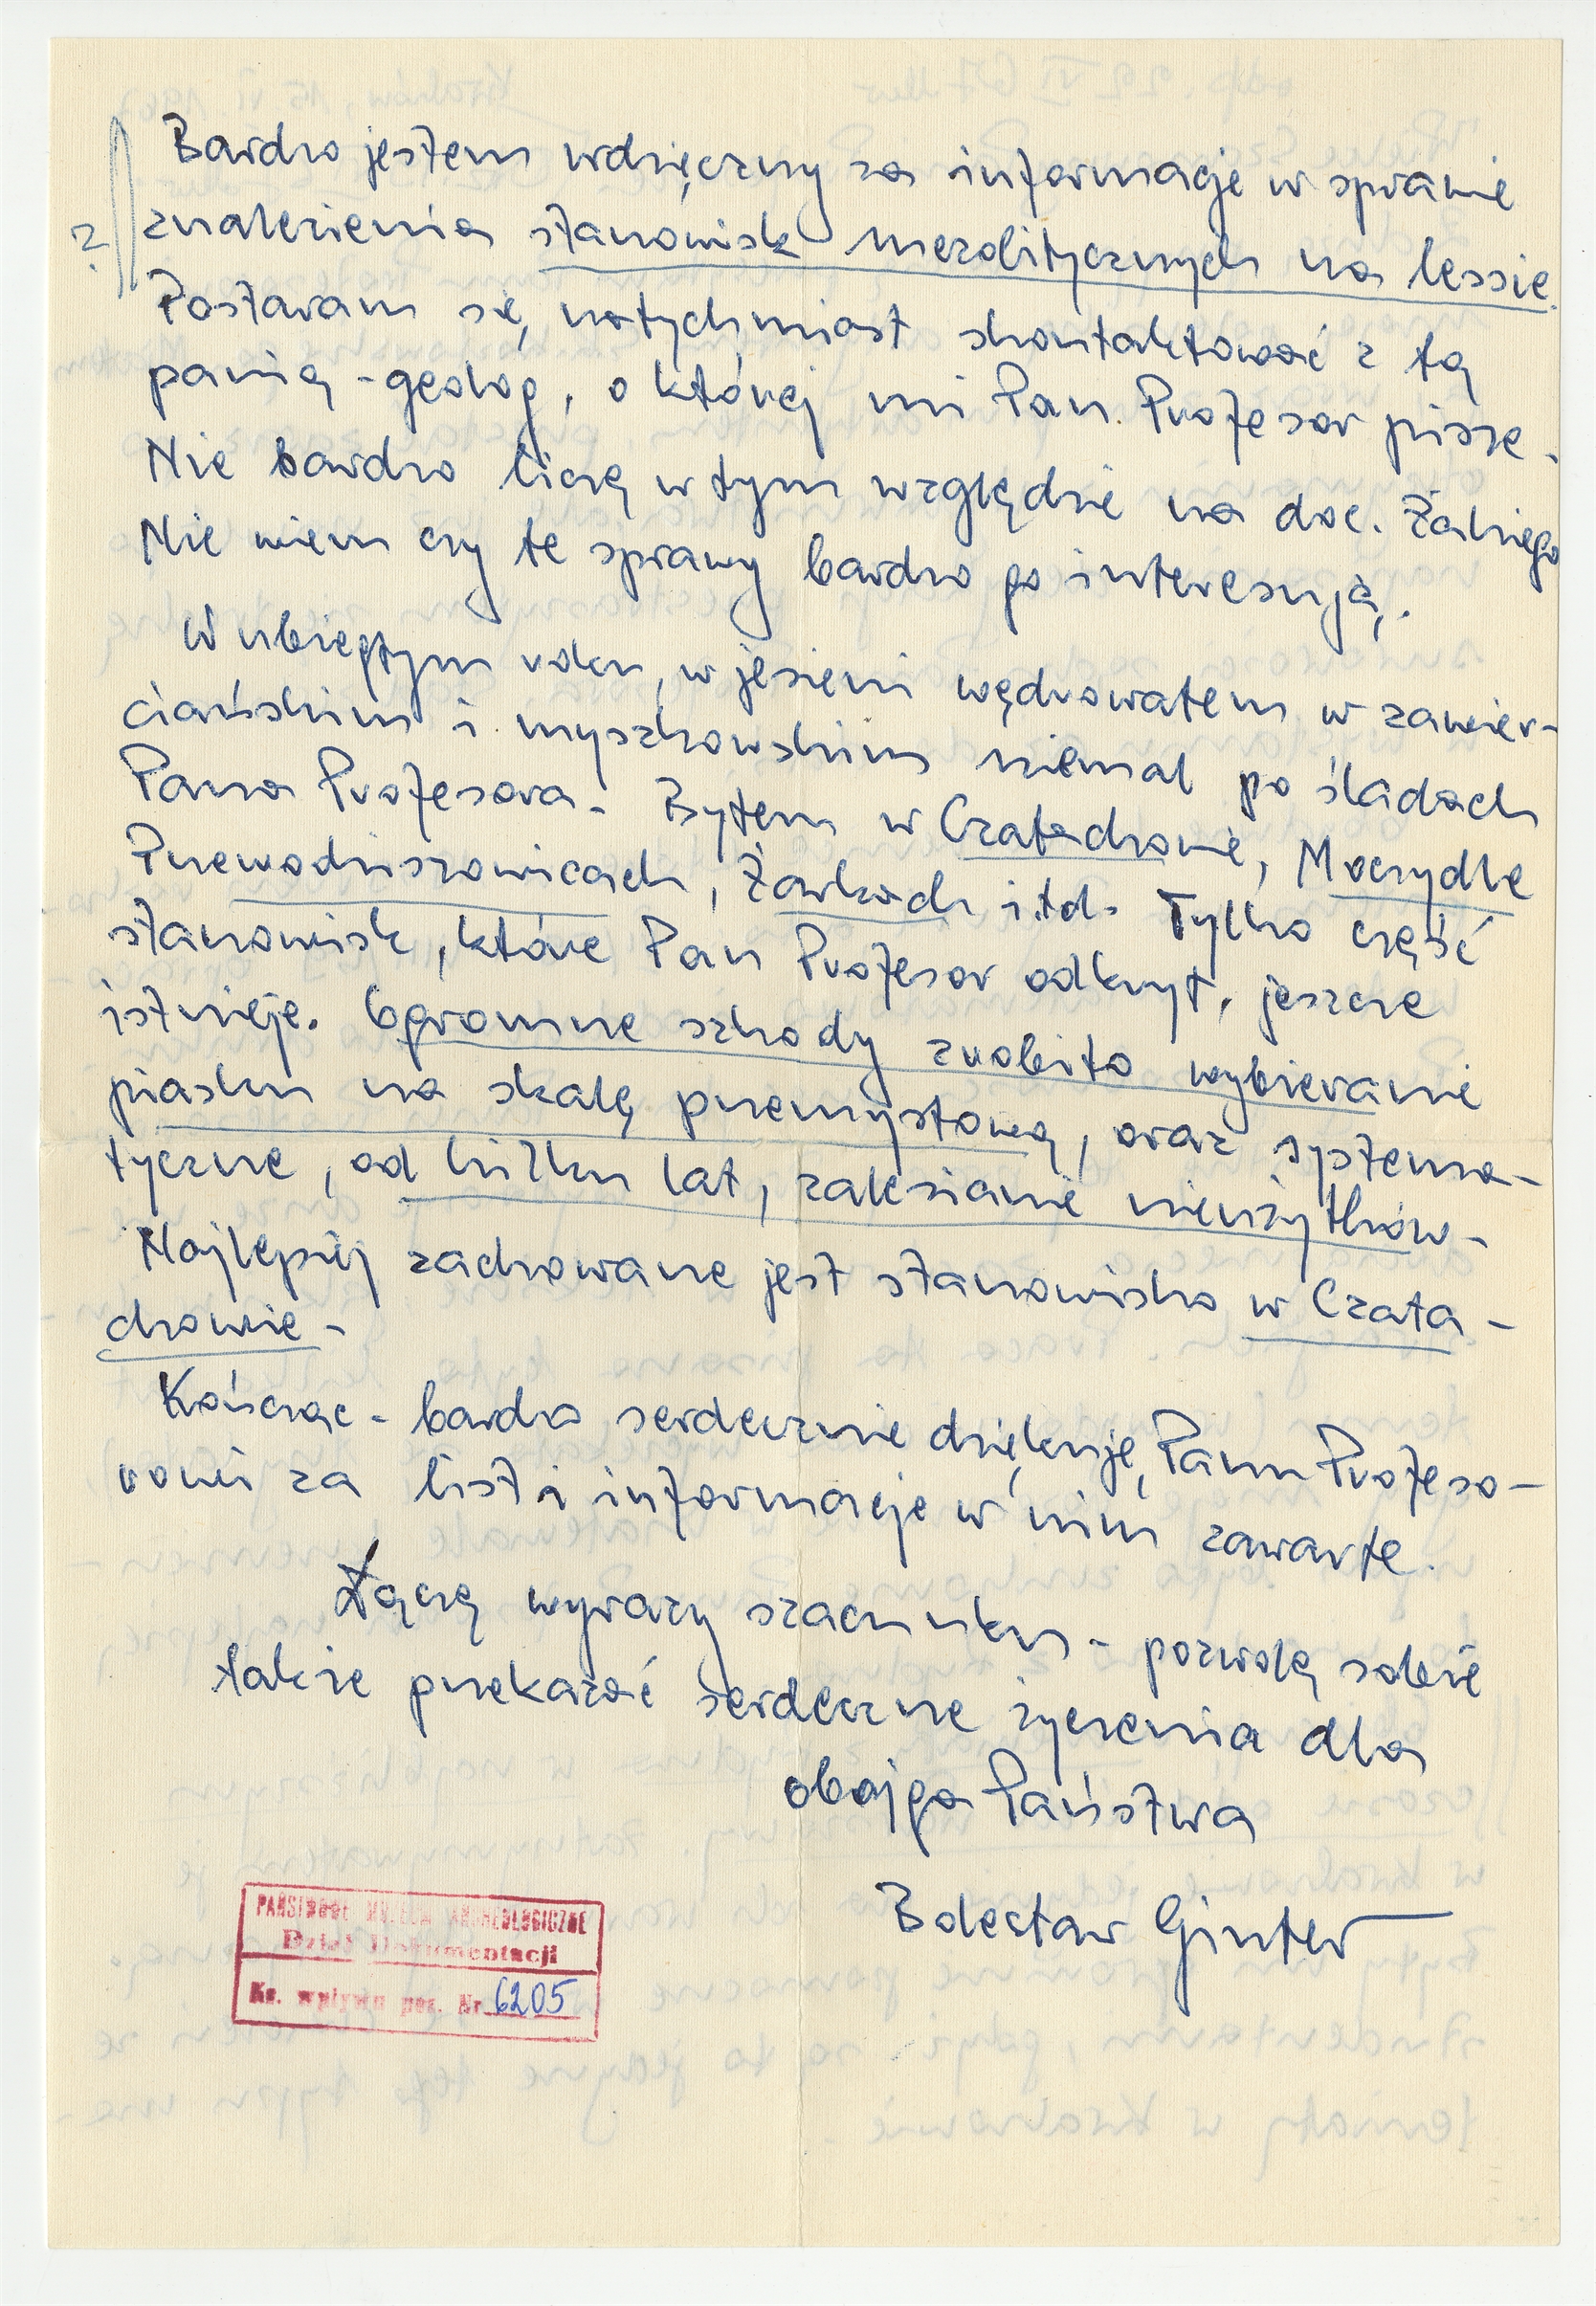 Bardzo jestem wdzięczny za informacje w sprawie
? znalezienia stanowisk mezolitycznych na lessie.
Postaram się natychmiast skontaktować z tą
panią - geolog, o której mi Pan Profesor pisze.
Nie bardzo liczę w tym względzie na doc. Żakiego
Nie wiem czy te sprawy bardzo go interesują.
W ubiegłym roku, w jesieni wędrowałem w zawier-
ciańskim i myszkowskim niemal po śladach
Pana Profesora. Byłem w Czatachowie, Moczydle
Przewodziszowicach, Żarkach i.t.d. Tylko część
stanowisk, które Pan Profesor odkrył, jeszcze
istnieje. Ogromne szkody zrobiło wybieranie
piasku na skalę przemysłową, oraz systema-
tyczne, od kilku lat, zalesianie nieużytków.
Najlepiej zachowane jest stanowisko w Czata-
chowie.
Kończąc - bardzo serdecznie dziękuję Panu Profeso-
rowi za list i informacje w nim zawarte.
Łączę wyrazy szacunku - pozwolę sobie
także przekazać serdeczne życzenia dla
obojga Państwa
Bolesław Ginter
PAŃSTWOWE MUZEUM ARCHEOLOGICZNE
Dział Dokumentacji
Ks. wpływu poz. Nr 6205